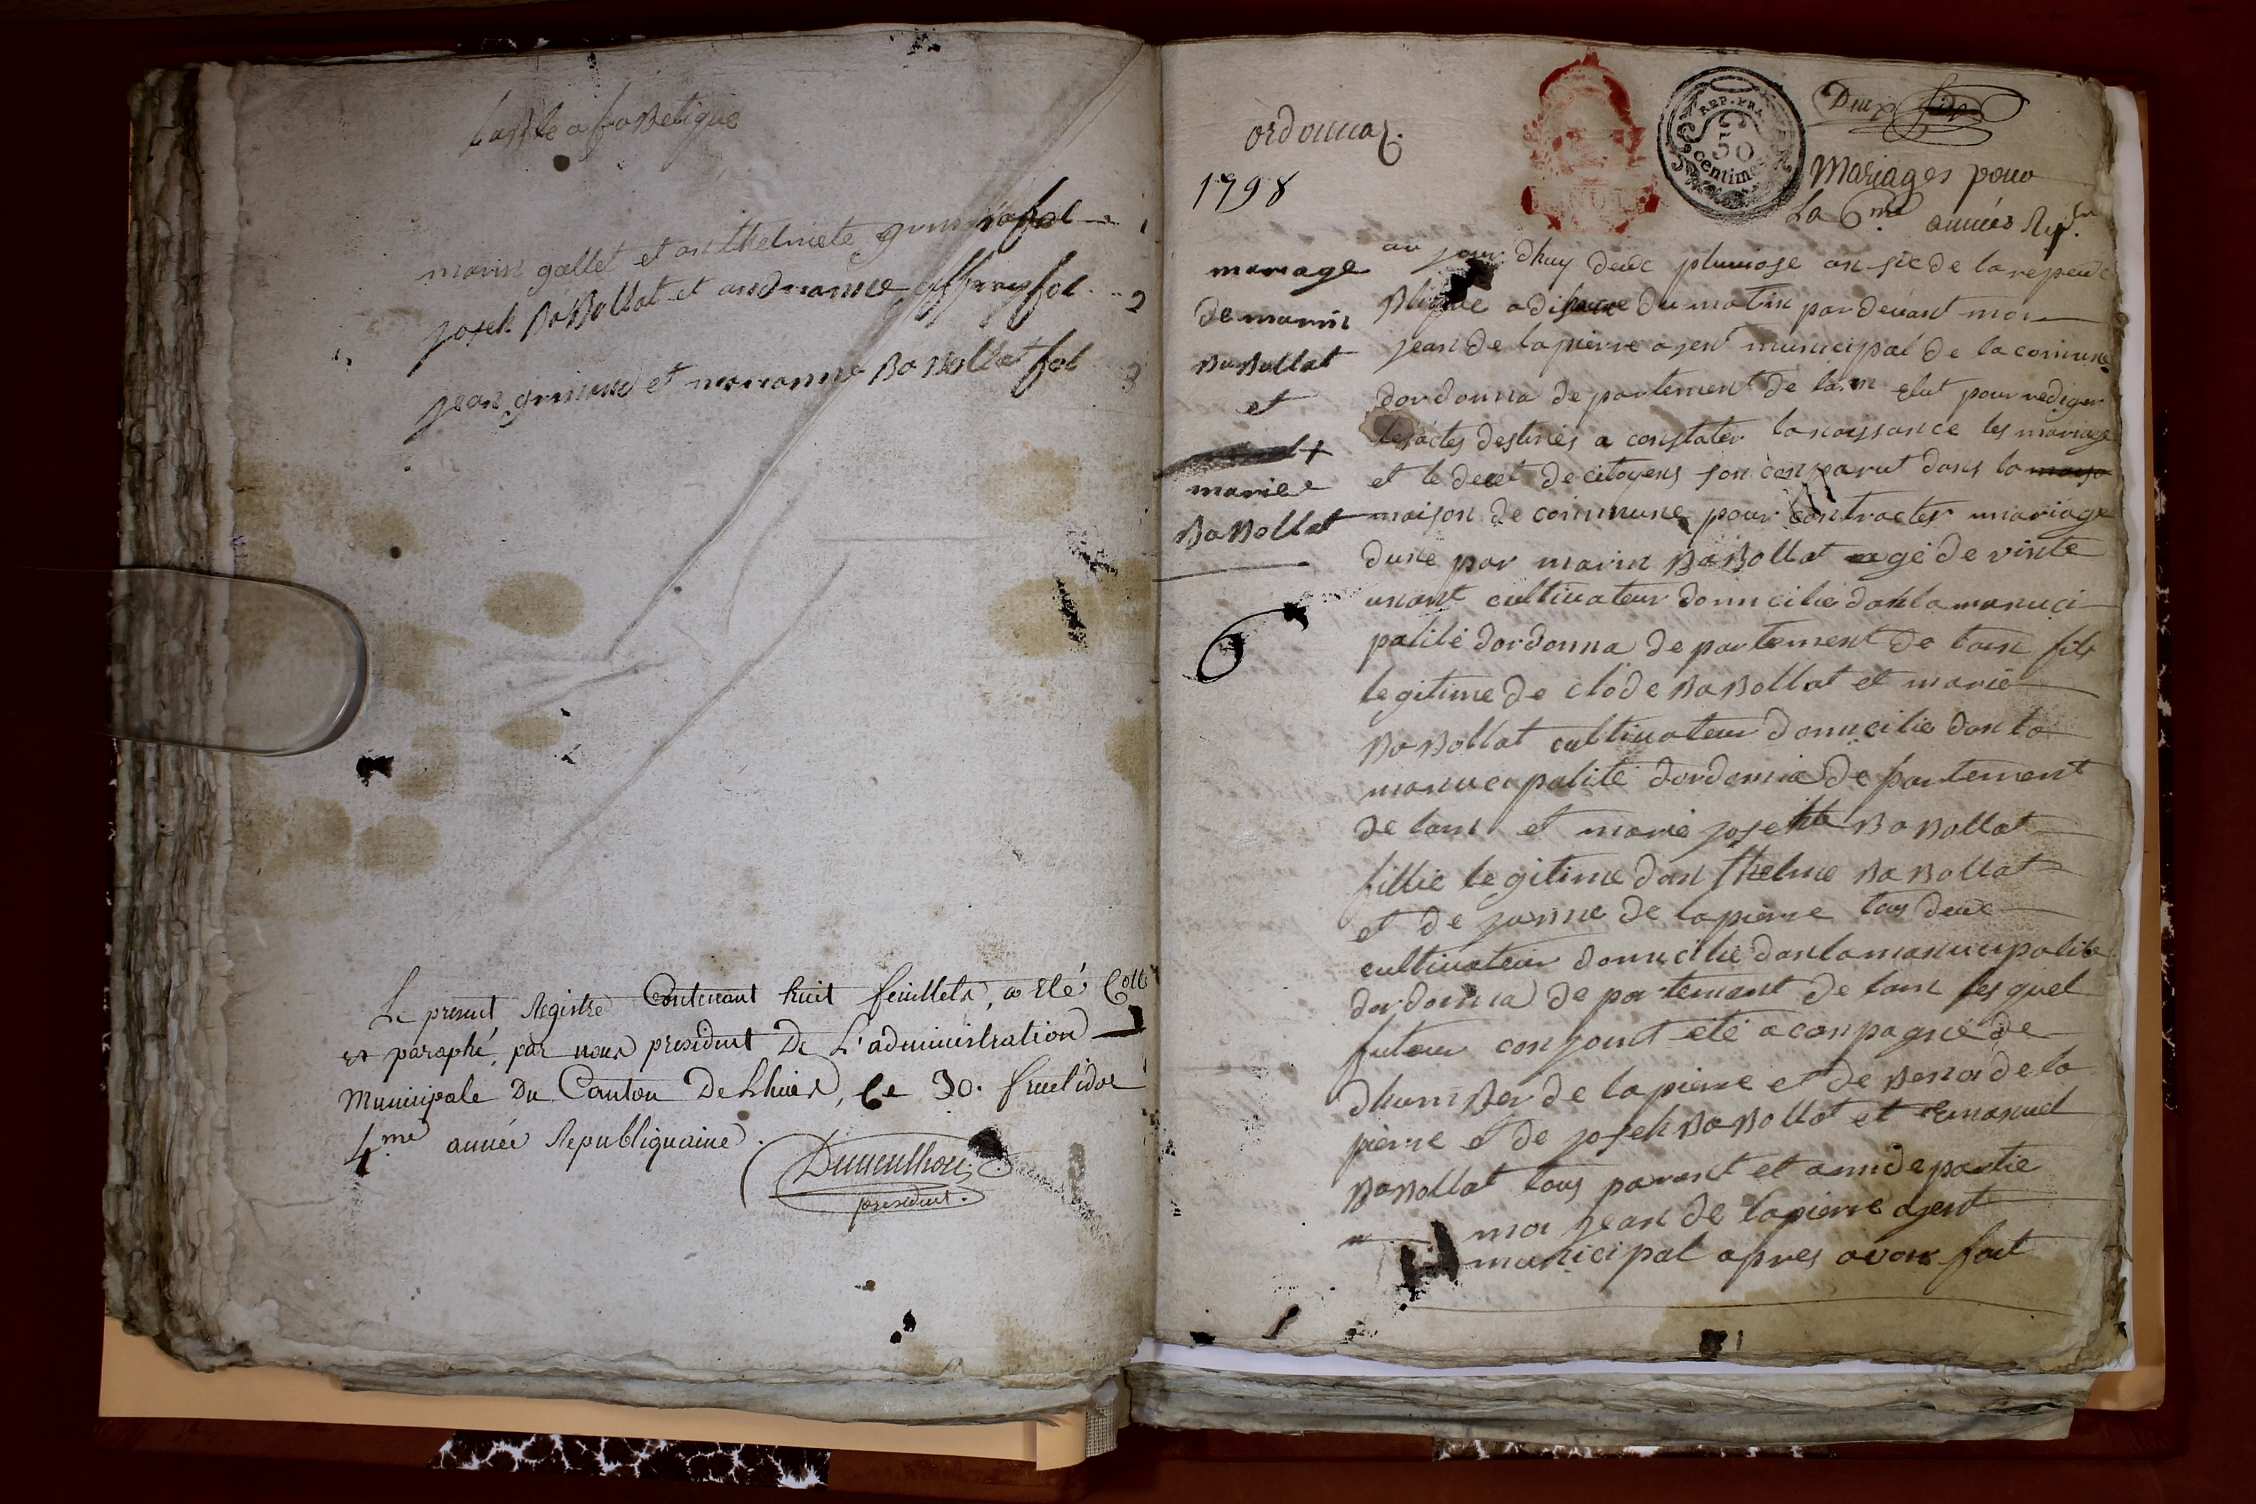 marin gallet et anthelmete fol 1
joseh baBollat et andnanne fol 2
jean grinand et marianne BaBollat fol 3
Le present Registre Contenant huit feuillets, a été Cotté
et paraphé, par nous president De L'administration
Municipale Du Canton De Lhuis, Le 30. fructidor
4.me année Republiquaine.
president.
ordonnaz.
1798
REP. FRA.
50
centimes
Deux
Mariages pour
La 6.me années Rep.ne
mariage
de marin
BaBollat
et
marie
BaBollat
6
au jour dhuy deuc pluviose an sic de la repeu
Blique a dis heure du matin par devant moi
jean de lapierre agent municipal de la comune
dordonna departement de lain elut pour rediger
les actes destinés a constater la naissance les mariage
et le decet de citoyens son conparut dans la
maison de commune pour contracter mariage
dune par marin BaBollat agé de vinte
unant cultivateur domicilie dan la manuci
palité dordonna departement de lain fils
legitime de clode BaBollat et marie
BaBollat cultivateur domicilie dan la
manucapalité dordonna departement
de lain et marie josehte BaBollat
fillie legitime dan thelme BaBollat
et de janne de lapierre tous deuc
cultivateur domicilie dan la manucipalité
dordonna departement de lain les quel
futeur conjoint été aconpagné de
dhumBer de lapierre et de Benoi de la
pierre et de joseh BaBollat et Emanuel
BaBollat tous parent et ami de partie
moi jean de lapierre agent
municipal apres avoir fait